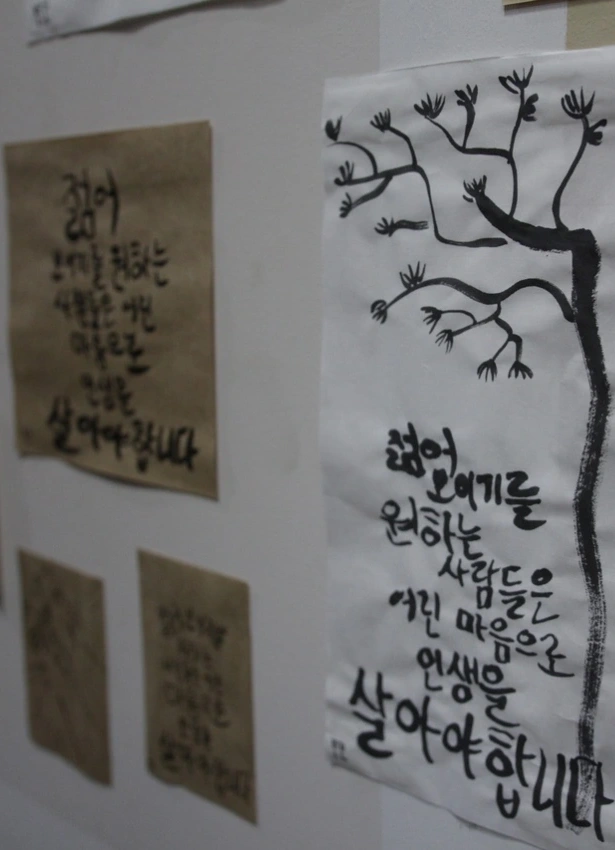 젊어
보이기를 원하는
사람들은 어린
마음으로
인생을
살아야 합니다
젊어
보이기를
원하는
사람들은
어린 마음으로
인생을
살아야 합니다